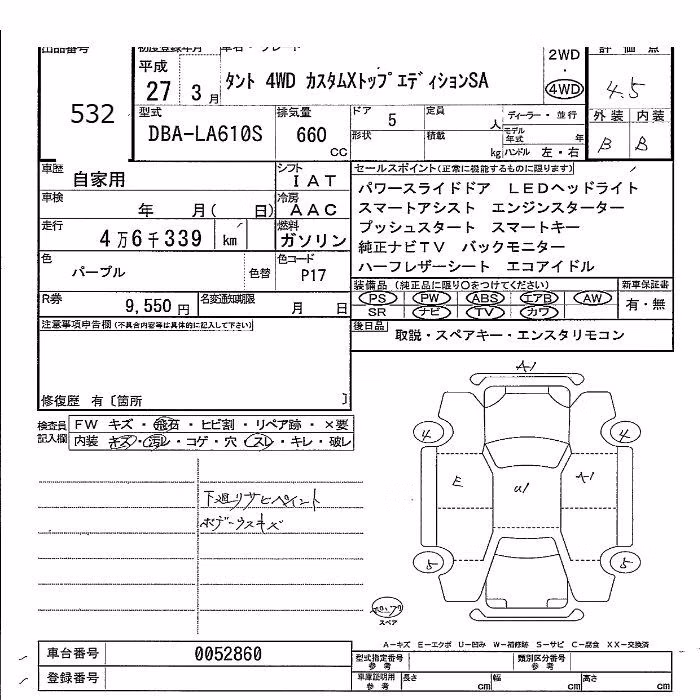 出品番号 初度登録年月 車名・グレード 評価点
532
平成
27 3 月
タント 4WD カスタムXトップエディションSA
2WD
・
4WD
4.5
型式 排気量 ドア 定員 ディーラー・並行 外装 内装
DBA-LA610S 660 CC 5 人
形状 積載 kg モデル年式 年 ハンドル 左・右
B B
車歴 自家用 シフト IAT
車検 年 月( 日) 冷房 AAC
走行 4万6千339 km 燃料 ガソリン
色 パープル 色替 色コード P17
R券 9,550 円 名変通知期限 月 日
セールスポイント(正常に機能するものに限ります)
パワースライドドア LEDヘッドライト
スマートアシスト エンジンスターター
プッシュスタート スマートキー
純正ナビTV バックモニター
ハーフレザーシート エコアイドル
装備品 (純正品に限り○をつけてください) 新車保証書
PS PW ABS エアB AW 有・無
SR ナビ TV カワ
後日品 取説・スペアキー・エンスタリモコン
注意事項申告欄(不具合内容等は具体的に記入して下さい)
修復歴 有〔箇所 〕
検査員記入欄
FW キズ・飛石・ヒビ割・リペア跡・×要
内装 キズ・汚レ・コゲ・穴・スレ・キレ・破レ
下廻りサビペイント
ボデーウスキズ
A1
4 4
E U1 A1
5 5
スペア
A−キズ E−エクボ U−凹み W−補修跡 S−サビ C−腐食 XX−交換済
車台番号 0052860
登録番号
型式指定番号 参考 類別区分番号 参考
車庫証明用 参考 長さ cm 幅 cm 高さ cm